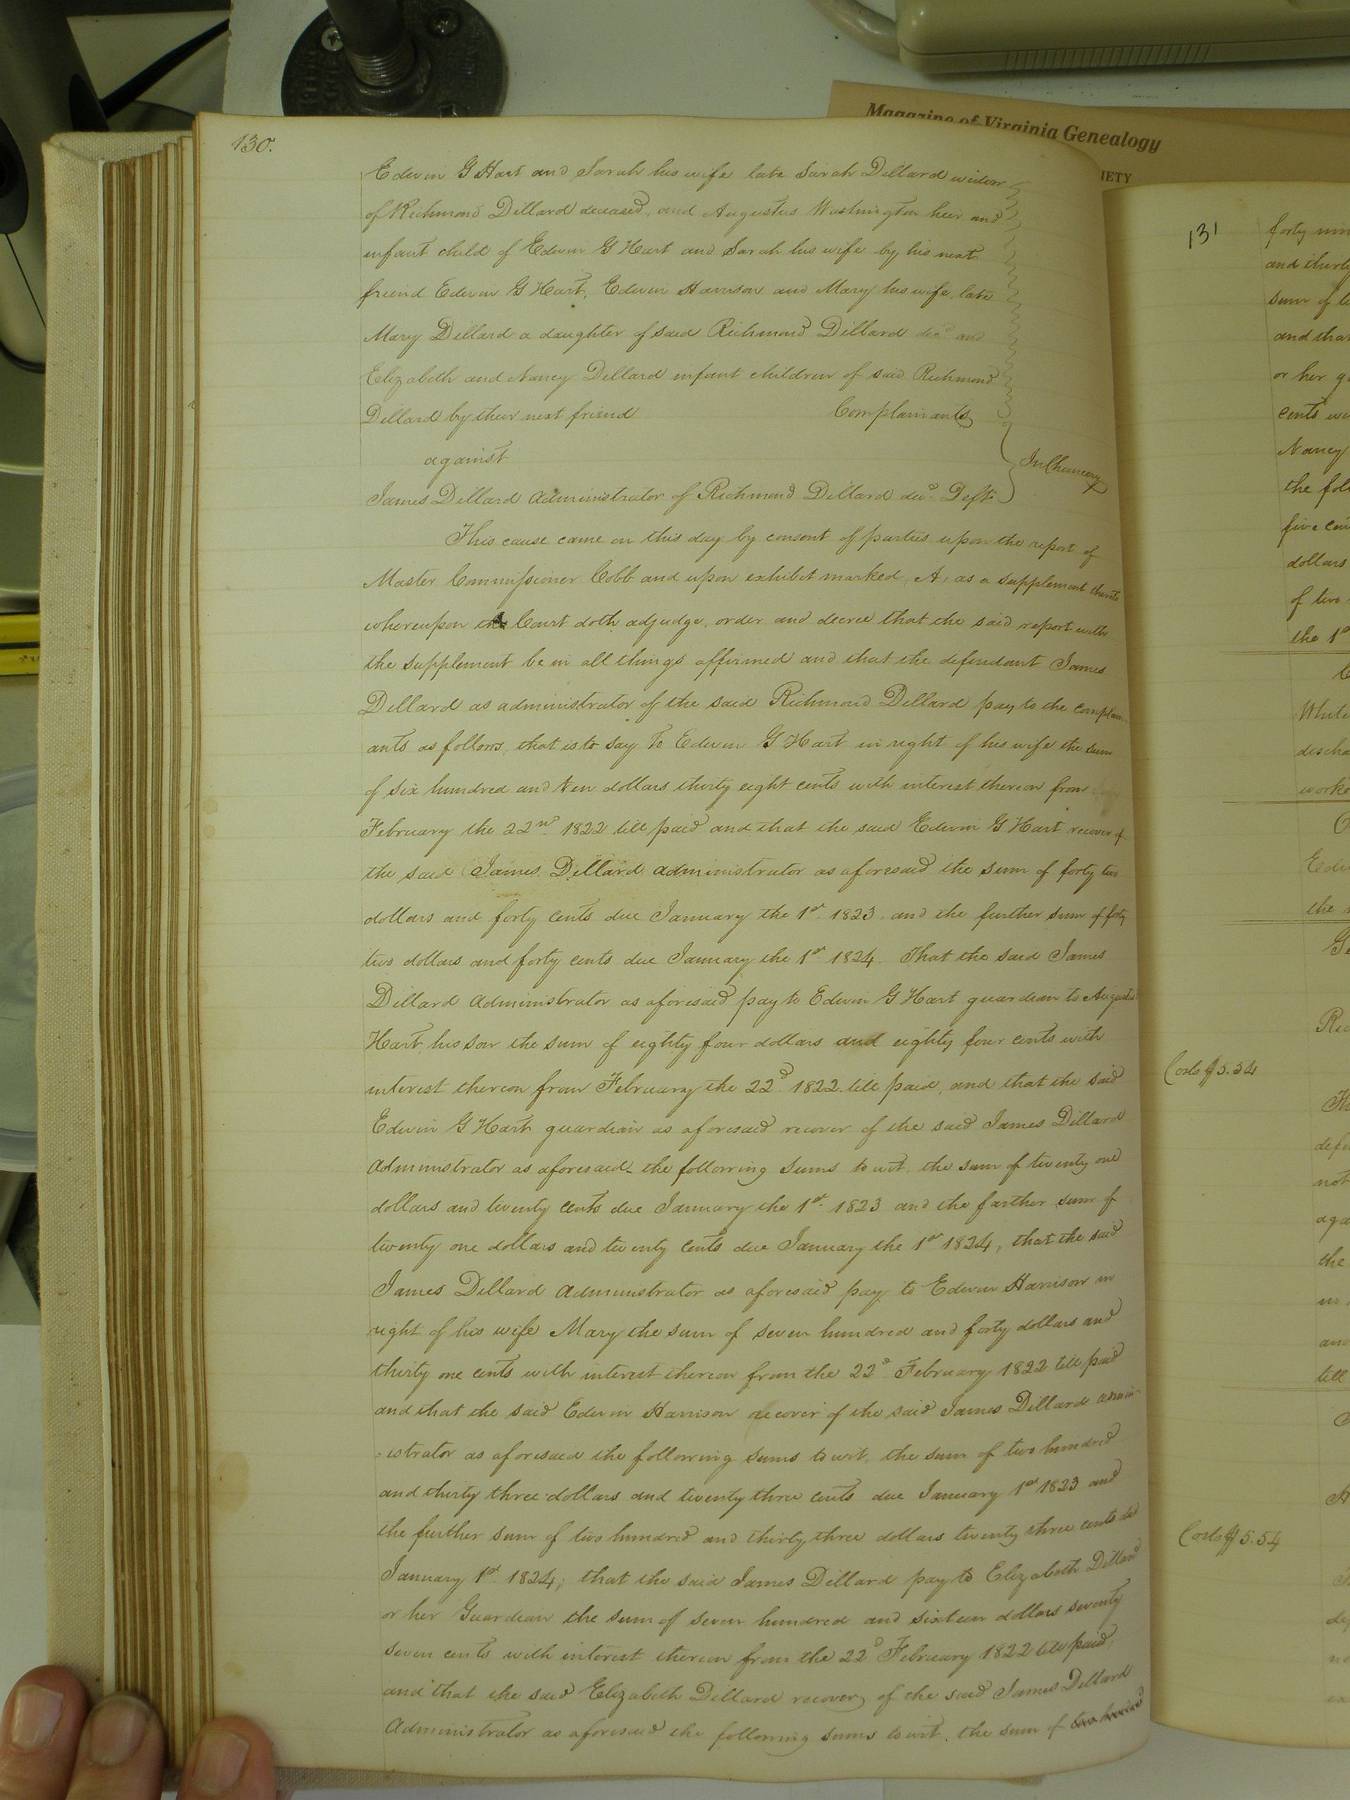 Magazine of Virginia Genealogy
IETY
130.
Edwin G Hart and Sarah his wife late Sarah Dillard widow
of Richmond Dillard deceased, and Augustus Washington heir and
infant child of Edwin G Hart and Sarah his wife by his next
friend Edwin G Hart, Edwin Harrison and Mary his wife, late
Mary Dillard a daughter of said Richmond Dillard decd and
Elizabeth and Nancy Dillard infant children of said Richmond
Dillard by their next friend Complainants
against
In Chancery
James Dillard Administrator of Richmond Dillard decd Deft.
This cause came on this day by consent of parties upon the report of
Master Commissioner Cobb and upon exhibit marked A, as a supplement thereto
whereupon the Court doth adjudge, order and decree that the said report with
the supplement be in all things affirmed and that the defendant James
Dillard as administrator of the said Richmond Dillard pay to the complain
ants as follows, that is to say, To Edwin G Hart in right of his wife the sum
of six hundred and ten dollars thirty eight cents with interest thereon from
February the 22nd 1822 till paid and that the said Edwin G Hart recover of
the said James Dillard administrator as aforesaid the sum of forty two
dollars and forty cents due January the 1st 1823 and the further sum of forty
two dollars and forty cents due January the 1st 1824. That the said James
Dillard Administrator as aforesaid pay to Edwin G Hart guardian to Augustus
Hart his son the sum of eighty four dollars and eighty four cents with
interest thereon from February the 22d 1822 till paid, and that the said
Edwin G Hart guardian as aforesaid recover of the said James Dillard
Administrator as aforesaid the following sums to wit, the sum of twenty one
dollars and twenty cents due January the 1st 1823 and the farther sum of
twenty one dollars and twenty cents due January the 1st 1824, that the said
James Dillard Administrator as aforesaid pay to Edwin Harrison in
right of his wife Mary the sum of seven hundred and forty dollars and
thirty one cents with interest thereon from the 22d February 1822 till paid
and that the said Edwin Harrison recover of the said James Dillard admin-
-istrator as aforesaid the following sums to wit, the sum of two hundred
and thirty three dollars and twenty three cents due January 1st 1823 and
the further sum of two hundred and thirty three dollars twenty three cents due
January 1st 1824; that the said James Dillard pay to Elizabeth Dillard
or her Guardian the sum of seven hundred and sixteen dollars seventy
seven cents with interest thereon from the 22d February 1822 till paid,
and that the said Elizabeth Dillard recover of the said James Dillard
Administrator as aforesaid the following sums to wit, the sum of two hundred
131
forty nin
and thirty
sum of
and that
or her g
cents
Nancy
the fol
five cen
dollars
of two
the 1st
White
discha
worke
Edw
the
Costs $5.54
defe
not
aga
the
in
and
till
Costs $5.54